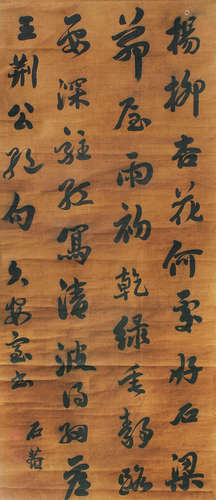 楊柳杏花何處好石梁
茆屋雨初乾綠垂靜路
要深駐紅寫清波得細看
王荊公絕句 久安室書
石菴